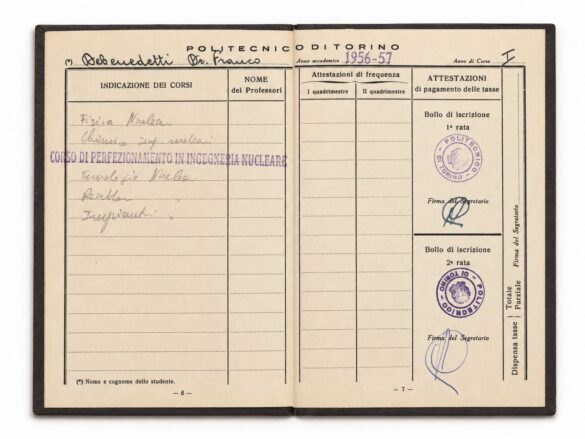 POLITECNICO DI TORINO
(*) Debenedetti Dr. Franco
Anno accademico 1956-57
Anno di Corso I
INDICAZIONE DEI CORSI
NOME
dei Professori
Fisica Nuclea
Chimica imp. nucleari
CORSO DI PERFEZIONAMENTO IN INGEGNERIA NUCLEARE
Tecnologie Nuclea
(*) Nome e cognome dello studente.
— 6 —
Attestazioni di frequenza
I quadrimestre
II quadrimestre
ATTESTAZIONI
di pagamento delle tasse
Bollo di iscrizione
1ª rata
POLITECNICO DI TORINO
Firma del Segretario
Bollo di iscrizione
2ª rata
POLITECNICO DI TORINO
Firma del Segretario
Dispensa tasse
Totale
Parziale
Firma del Segretario
— 7 —